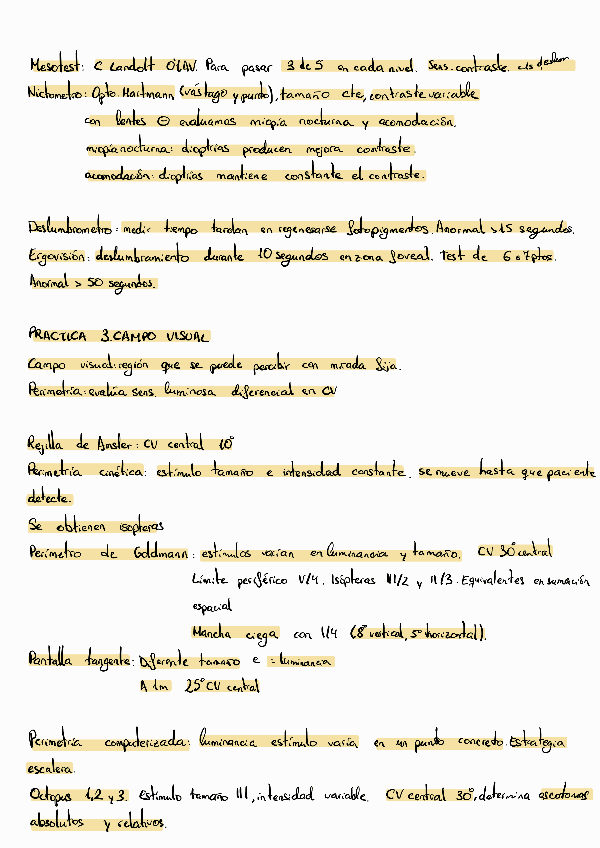 Mesotest: C Landolt 0'1AV. Para pasar 3 de 5 en cada nivel. Sens. contraste. cls deslum
Nictometro: Opto. Hartmann (vástago y punto), tamaño cte, contraste variable
con lentes ⊖ evaluamos miopía nocturna y acomodación.
miopía nocturna: dioptrías producen mejora contraste.
acomodación: dioptrías mantiene constante el contraste.
Deslumbrometro: medir tiempo tardan en regenerarse fotopigmentos. Anormal >15 segundos.
Ergovisión: deslumbramiento durante 10 segundos en zona foveal. Test de 6 o 7 ptos.
Anormal > 50 segundos.
PRACTICA 3. CAMPO VISUAL
Campo visual: región que se puede percibir con mirada fija.
Perimetría: evalúa sens. luminosa diferencial en CV
Rejilla de Amsler: CV central 10°
Perimetría cinética: estímulo tamaño e intensidad constante. se mueve hasta que paciente
detecte.
Se obtienen isopteras
Perímetro de Goldmann: estímulos varían en luminancia y tamaño. CV 30° central
Límite periférico V/4. Isópteras III/2 y II/3. Equivalentes en sumación
espacial
Mancha ciega con I/4 (8° vertical, 5° horizontal).
Pantalla tangente: Diferente tamaño e = luminancia
A 1m 25° CV central
Perimetría computerizada: luminancia estímulo varía en un punto concreto. Estrategia
escalera.
Octopus 1, 2 y 3. Estímulo tamaño III, intensidad variable. CV central 30°, determina escotomas
absolutos y relativos.